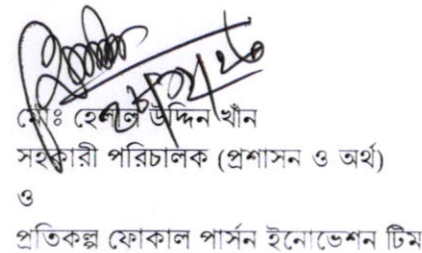 মোঃ হেলাল উদ্দিন খাঁন
সহকারী পরিচালক (প্রশাসন ও অর্থ)
ও
প্রতিকল্প ফোকাল পার্সন ইনোভেশন টিম